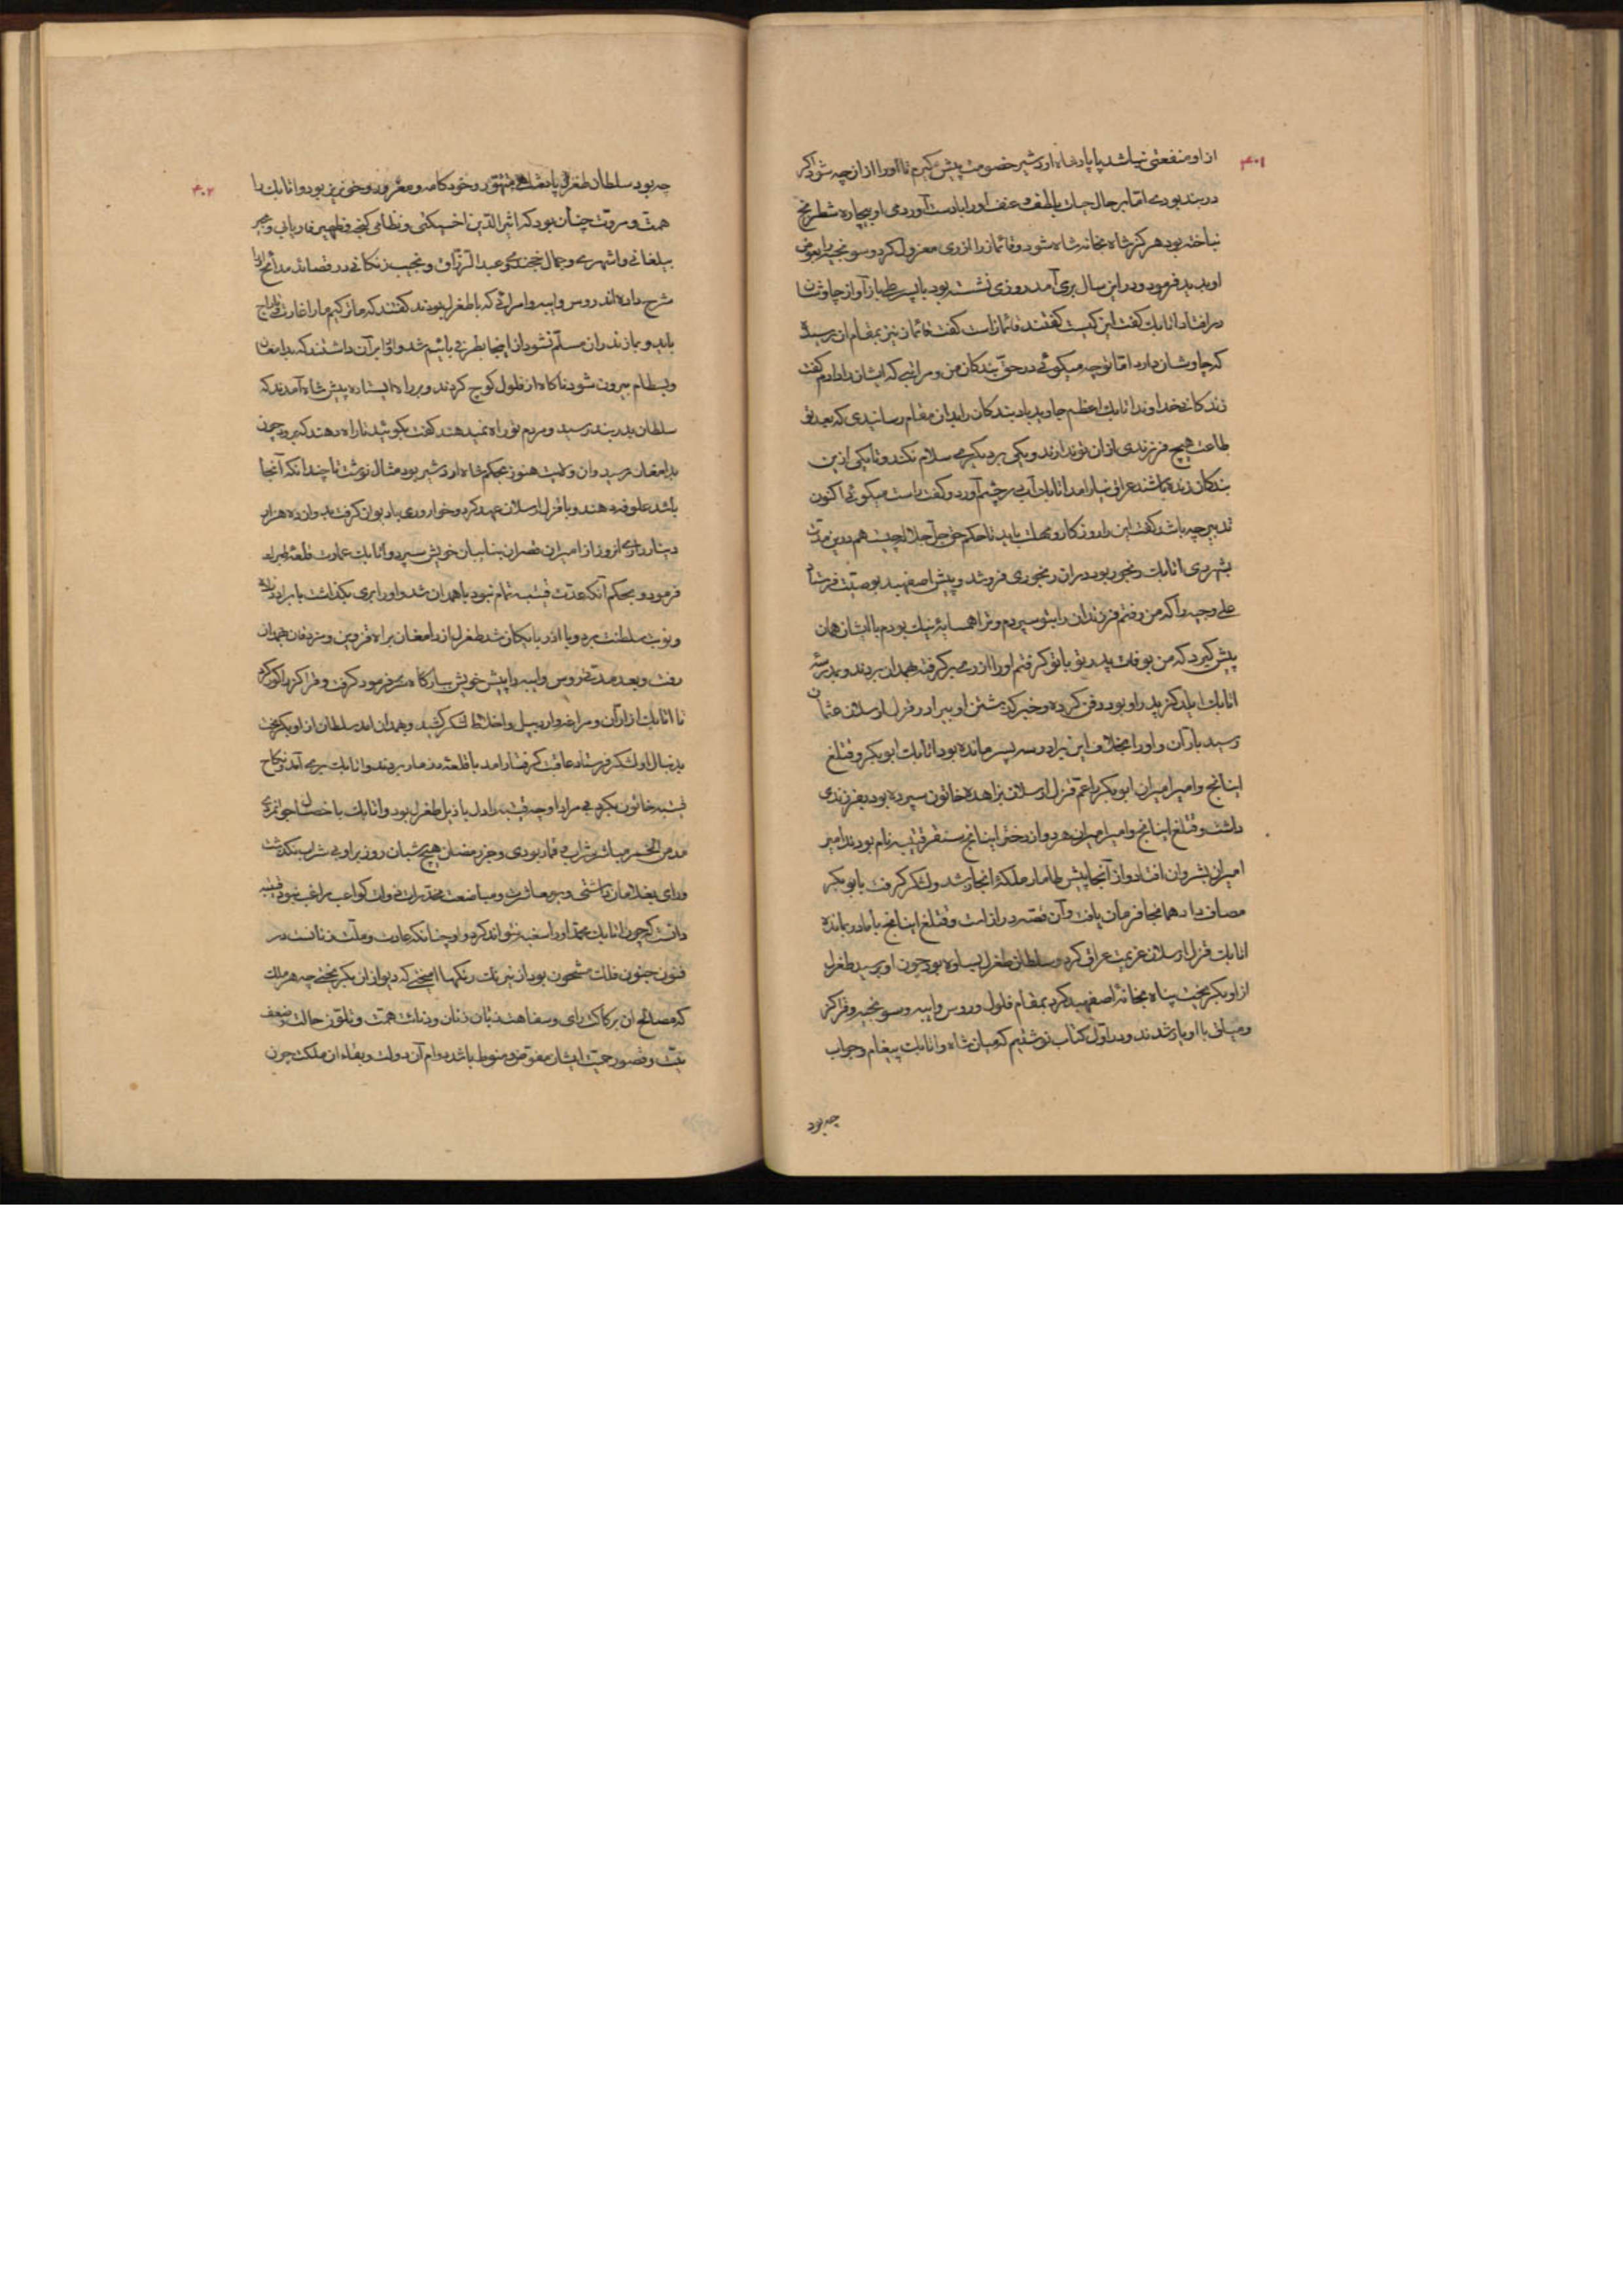 ۴۰۱
از او منفعتی نباشد با پادشاه اردشیر خصومت پیش کیرم تا او را از ان چه شود اکر
دربند بودی اما بر حال حیات بالطف و عنف او را بادست آوردمی او بیچاره شطرنج
نباخته بود هرکز شاه بخانه شاه شود و قائماز را از ری معزول کرد و سونجه را بعوض
او بدید فرمود و در این سال بری آمد روزی نشسته بود با پسر طی باز آواز چاوشان
در افتاد اتابک کفت این کیست کفتند قائماز است کفت قائماز نیز بمقام ان رسید
که چاوشان دارد اما تو چه میکوئی در حق بندکان من و مراتبی که ایشان را دادم کفت
زندکانی خداوند اتابک اعظم جاوید باد بندکان را بدان مقام رسانیدی که بعد تو
طاعت هیچ فرزندی از ان تو ندارند و یکی بر دیکری سلام نکند و تا یکی ازین
بندکان زنده باشند عراق نیارامد اتابک آب در چشم آورد و کفت راست میکوئی اکنون
تدبیر چه باشد کفت این را روزکار و مهلت باید تا حکم حق جل جلاله چیست هم درین مدت
بشهر ری اتابک رنجور بود در ان رنجوری فرو شد و پیش اصفهبد بوصیت فرستاد
علی وجیه را که من رفتم فرزندان را بتو سپردم و ترا همسایه نیک بودم با ایشان همان
پیش کیرد که من بوفات پدر تو با تو کرفتم او را از ری بر کرفته بهمدان بردند و بمدرسه
اتابک ایلدکز پدر او بود دفن کرده و خبر کذشتن او ببرادر قزل ارسلان عثمان
رسید باران و او را بخلاف این برادر سه پسر مانده بود اتابک ابوبکر و قتلغ
اینانج و امیر امیران ابوبکر را عم قزل ارسلان بزاهده خاتون سپرده بود بفرزندی
داشت و قتلغ اینانج و امیر امیران هر دو از دختر اینانج سنقر قتیبه نام بودند امیر
امیران بشروان افتاد و از آنجا پیش طامار ملکه انجاز شد و لشکر کرفت با بوبکر
مصاف داد همانجا فرمان یافت و آن قصه دراز است و قتلغ اینانج با مادر بمانده
اتابک قزل ارسلان عزیمت عراق کرد و سلطان طغرل بساوه بود چون او برسید طغرل
از او بکریخت پناه بخانه اصفهبد کرد بمقام فلول و روس و ایبه و سونجه و قراکز
و میاق با او یار شدند و در اول کتاب نوشتیم که میان شاه و اتابک پیغام و جواب
چه بود
۴۰۲
چه بود سلطان طغرل پادشاهی متهور و خودکامه و مغرور و خونریز بود و اتابک را
همت و مروت چنان بود که اثیر الدین اخسیکتی و نظامی کنجه و ظهیر فاریابی و مجیر
بیلغانی و اشهری و جمال خجندی و عبد الرزاق و نجیب زنکانی در قصائد مدائح او را
شرح داده اند روس و ایبه و امرائی که با طغرل بودند کفتند که ما ترکیم ما را غارت و تاراج
باید و مازندران مسلم نشود از اینجا بطرفی باشیم شد و او را بر آن داشتند که بدامغان
و بسطام بیرون شود ناکاه از فلول کوچ کردند و بر راه ایستاده پیش شاه آمدند که
سلطان بدربند رسید و مردم تو راه نمیدهند کفت بکوئید تا راه دهند کیرود چون
بدامغان رسید و ان ولایت هنوز بحکم شاه اردشیر بود مثال نوشت تا چندانکه آنجا
باشد علوفه دهند و با قزل ارسلان عهد کرد و خوار و ری با دیوان کرفت بدوازده هزار
دینار و از امیران قصران بنایبان خویش سپرد و اتابک عمارت قلعه طبرک
فرمود و بحکم آنکه عدت قتیبه تمام نبود با همدان شد و او را بری بکذاشت با برادرزاده
و نوبت سلطنت بزد و با اذربایکان شد طغرل از دامغان براه قزوین و مزدقان بهمدان
رفت و بعد مدتی روس و ایبه را پیش خویش ببارکاه بر فرمود کرفت و قراکز را کور کرد
تا اتابک از اران و مراغه و اردبیل و اخلاط لشکر کشید و بهمدان امد سلطان از او بکریخت
بدنبال او لشکر فرستاد عاقبت کرفتار امد با قلعه دزمار بردند و اتابک بری آمد و نکاح
قتیبه خاتون بکرد بی مراد او چه قتیبه را دل با ذیل طغرل بود و اتابک با خصال جوانمردی
مدمن الخمر مباشر شراب و قمار بودی و جز رمضان هیچ شبان روز بر او بی شراب نکذشت
و رای بغلامان داشتی و بر معاشرت و مباضعت مخدرات ذوات کواعب راغب نبود قتیبه
دانست که چون اتابک محمد او را سغبه نتواند کرد و او چنانکه عادت و ملت زنانست در
فنون جنون فلک مشحون بود از نیرنک رنکها امیختی که دیو از ان بکریختی چه هر ملک
که مصالح ان برکاکت رای و سفاهت بیان زنان و دنائت همت و تلون حالت و ضعف
نیت و قصور حمیت ایشان مفوض و منوط باشد دوام آن دولت و بقاء ان ملکت چون